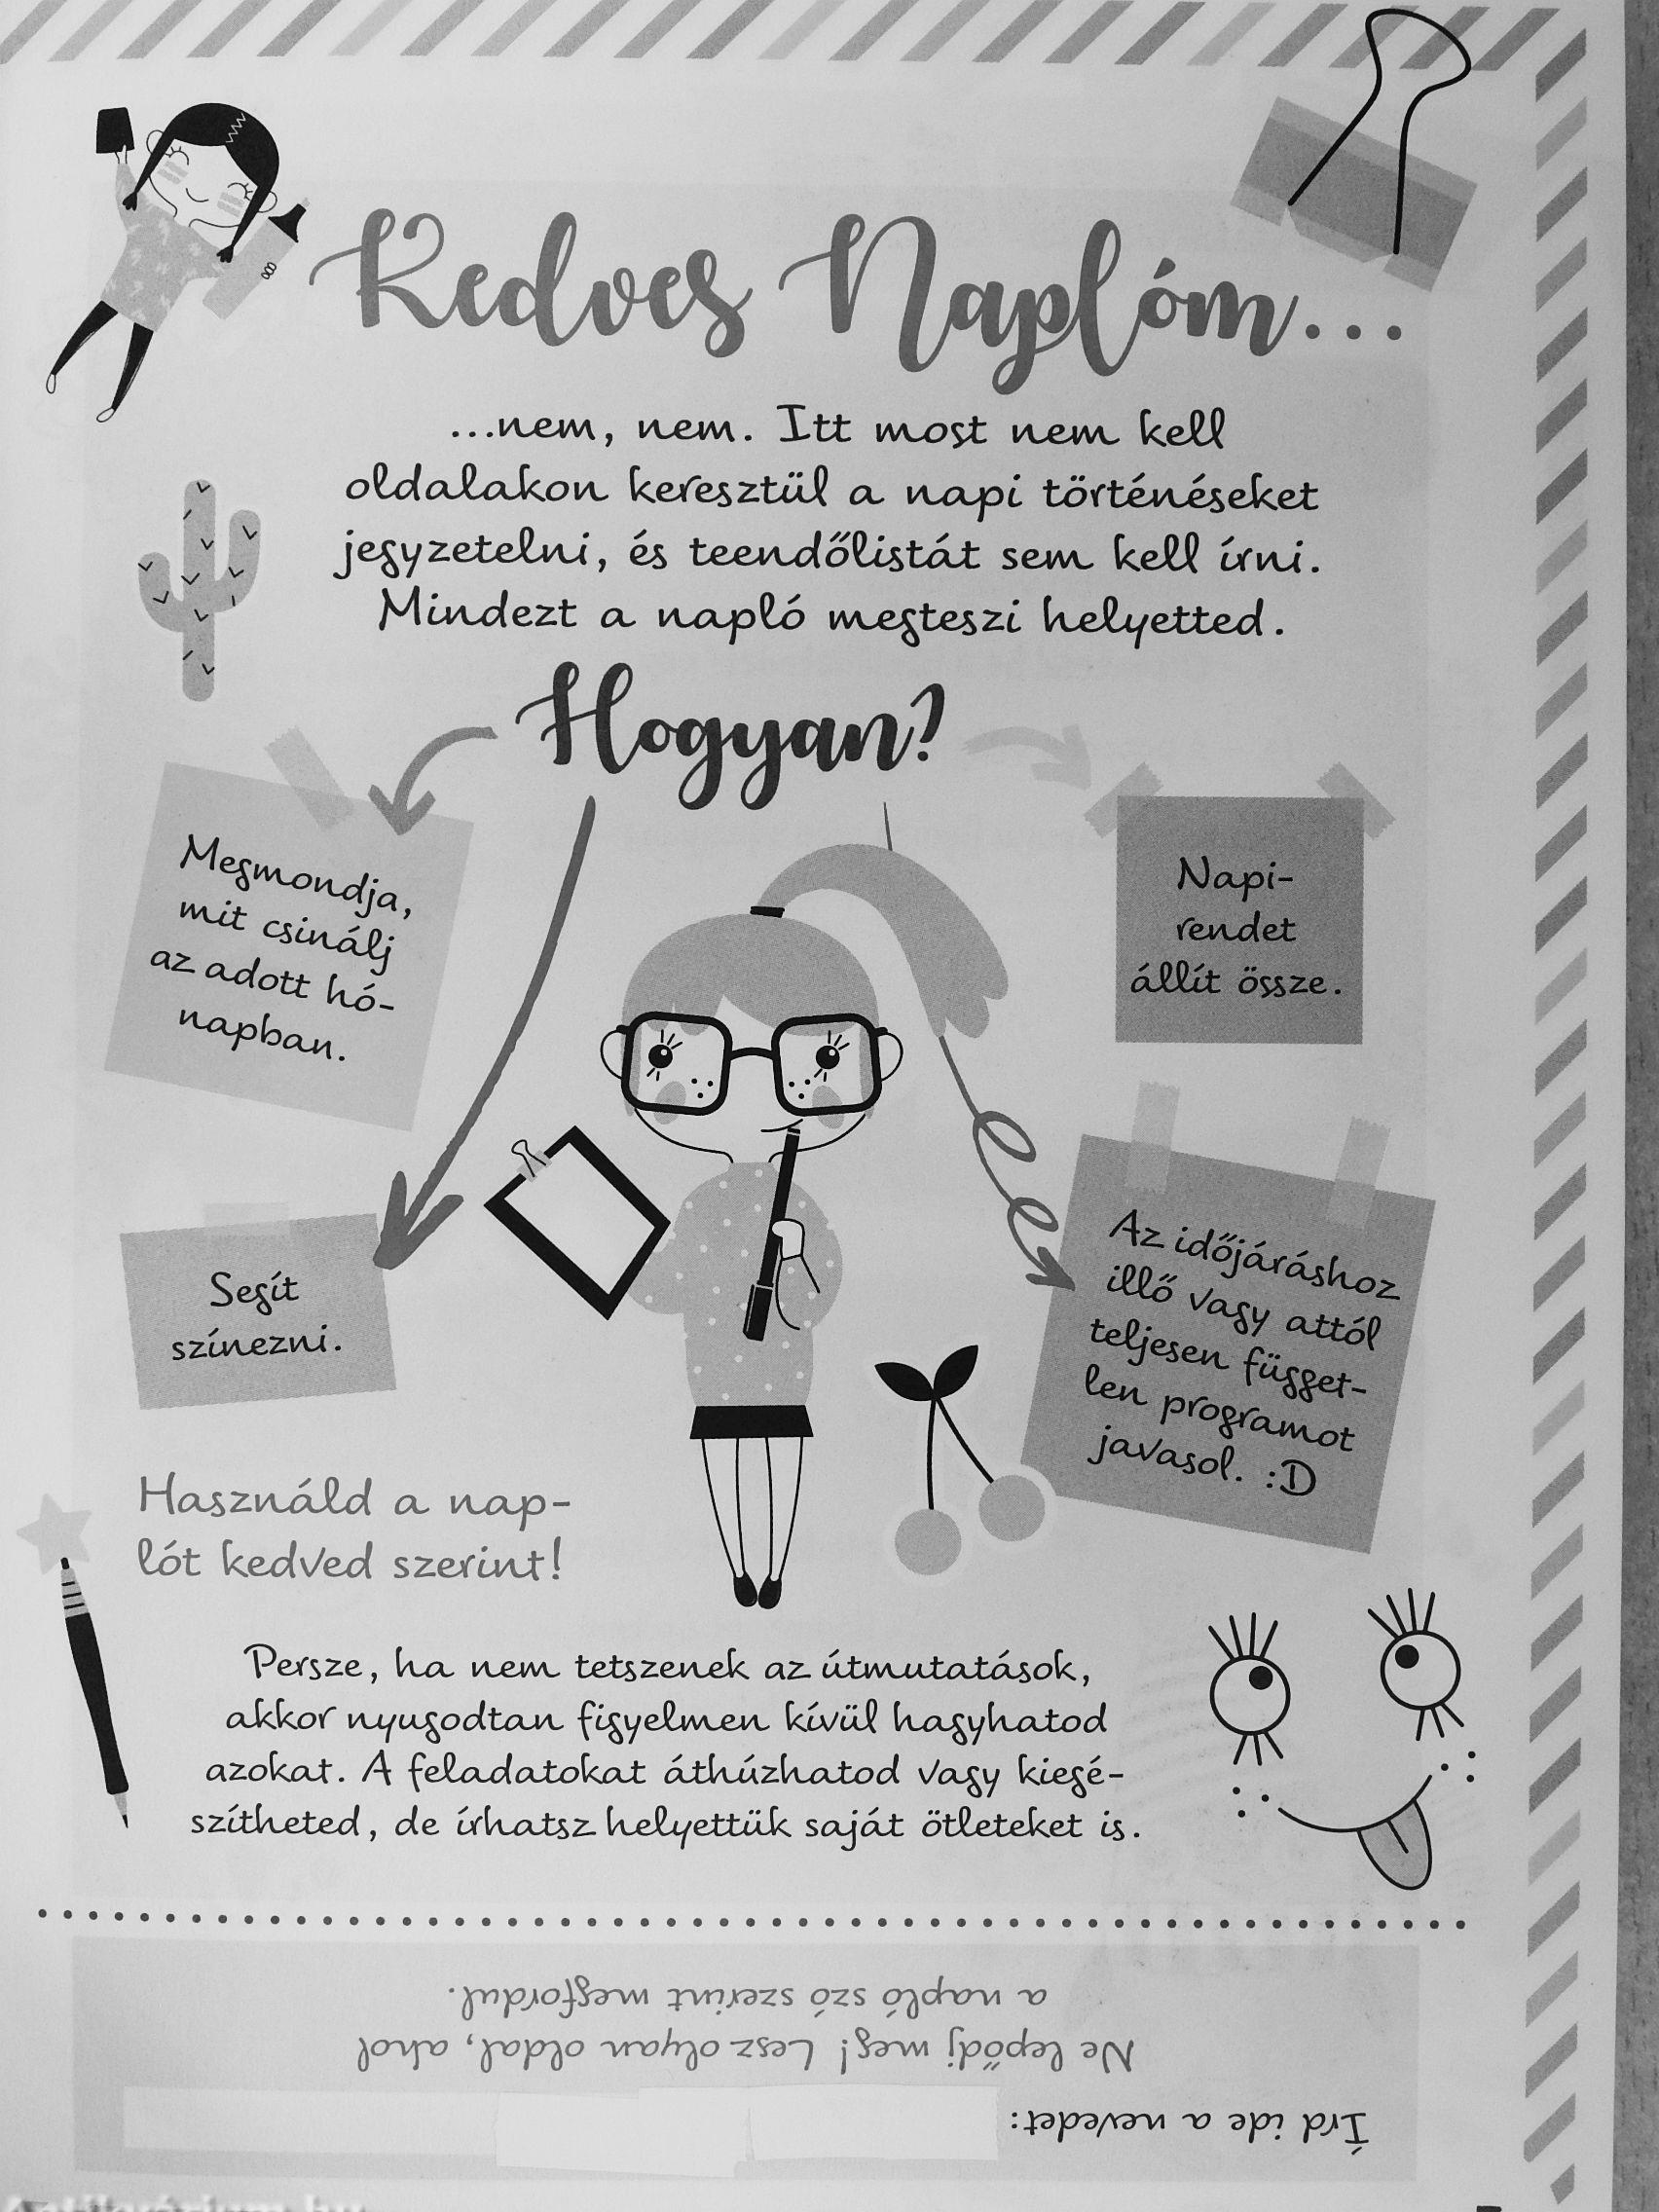 Kedves Naplóm...
...nem, nem. Itt most nem kell
oldalakon keresztül a napi történéseket
jegyzetelni, és teendőlistát sem kell írni.
Mindezt a napló megteszi helyetted.
Hogyan?
Megmondja,
mit csinálj
az adott hó-
napban.
Napi-
rendet
állít össze.
Segít
színezni.
Az időjáráshoz
illő vagy attól
teljesen függet-
len programot
javasol. :D
Használd a nap-
lót kedved szerint!
Persze, ha nem tetszenek az útmutatások,
akkor nyugodtan figyelmen kívül hagyhatod
azokat. A feladatokat áthúzhatod vagy kiegé-
szítheted, de írhatsz helyettük saját ötleteket is.
Írd ide a nevedet:
Ne lepődj meg! Lesz olyan oldal, ahol
a napló szó szerint megfordul.